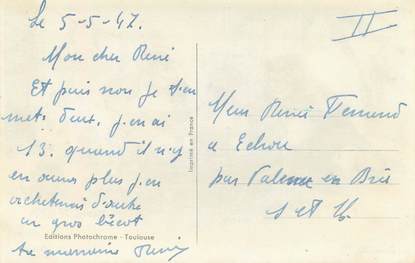 Le 5-5-47.
II
Mon cher René
Et puis non je t'en
mets deux. j'en ai
13. quand il n'y
en aura plus j'en
achèterai d'autre
un gros bécot
ta
Editions Photochrome - Toulouse
Imprimé en France
René
a Echou
par Valence en Brie
S et M.